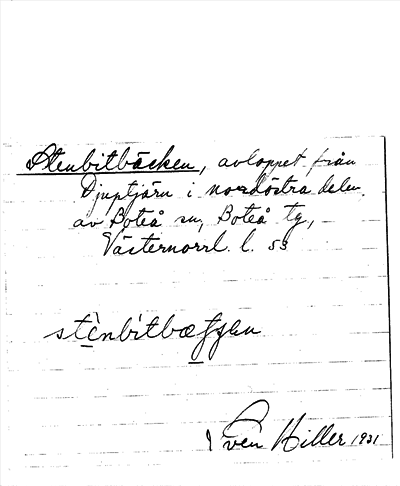 Stenbitbäcken, avloppet från
Djuptjärn i nordöstra delen
av Boteå sn, Boteå tg,
Västernorrl. l. 53
stènbitbæƒƒen
Sven Hiller 1931